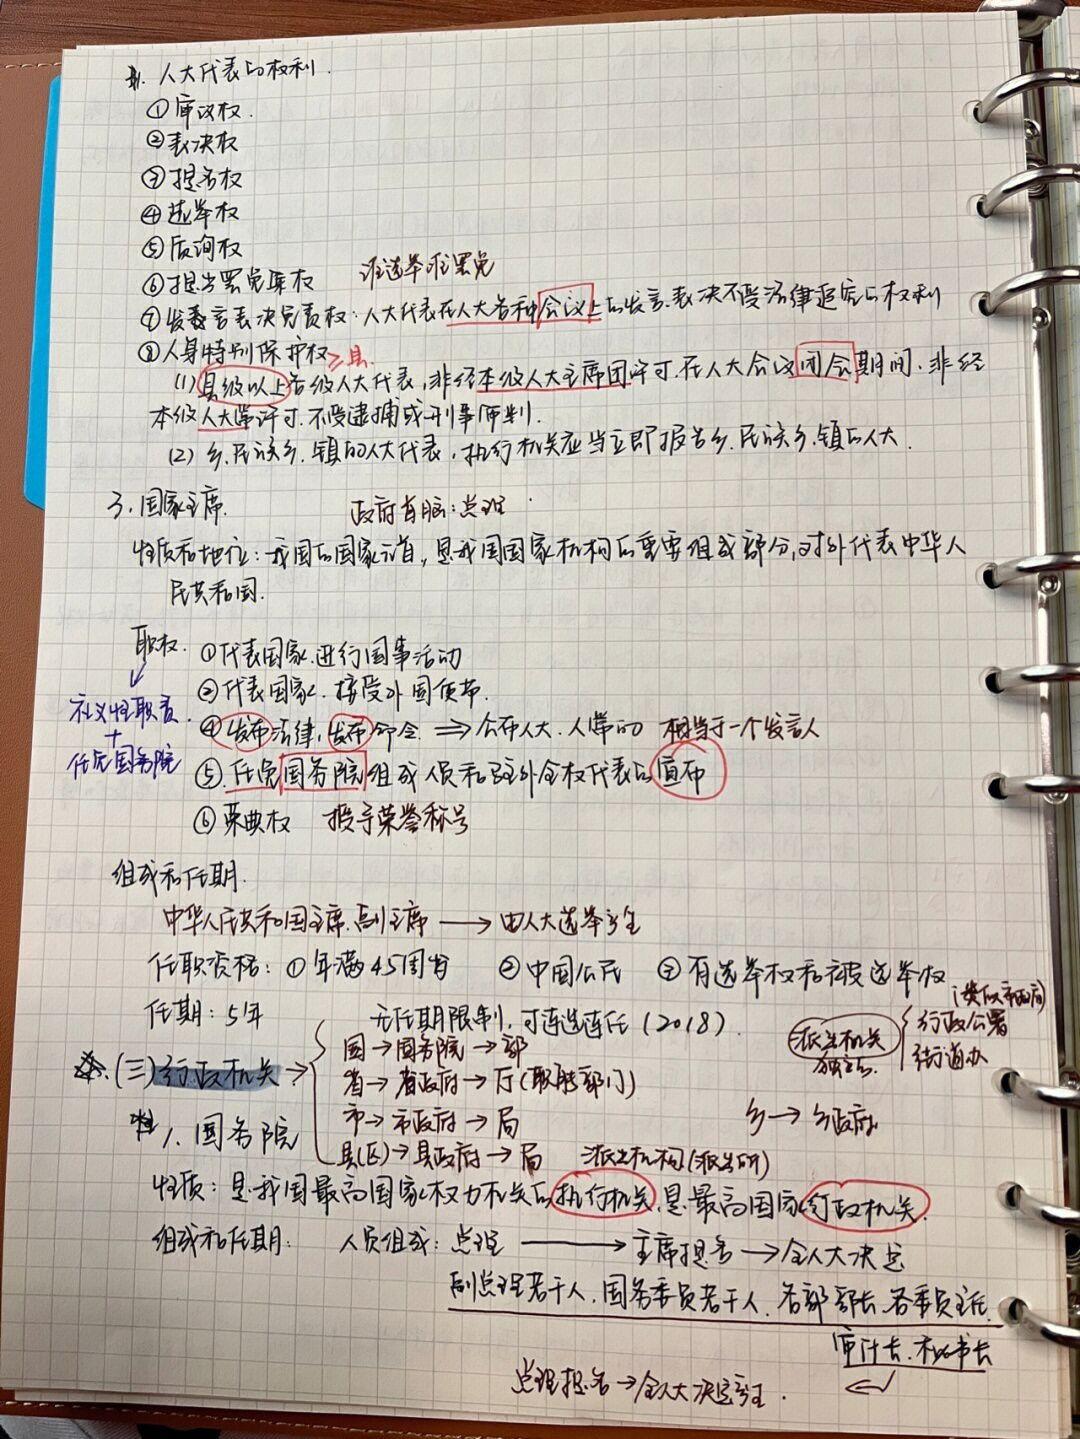 人大代表的权利.
①审议权.
②表决权
③提名权
④选举权
⑤质询权
⑥提出罢免案权 谁选举谁罢免
⑦发言表决免责权:人大代表在人大各种会议上的发言.表决不受法律追究的权利
⑧人身特别保护权 ≥县.
(1)县级以上各级人大代表,非经本级人大主席团许可.在人大会议闭会期间.非经
本级人大常许可.不受逮捕或刑事审判.
(2)乡.民族乡.镇的人大代表,执行机关应当立即报告乡.民族乡.镇的人大.
3.国家主席. 政府首脑:总理
性质和地位:我国的国家元首,是我国国家机构的重要组成部分,对外代表中华人
民共和国.
职权. ①代表国家.进行国事活动
②代表国家.接受外国使节.
礼仪性职责 ④发布法律,发布命令 ⇒公布人大.人常的 相当于一个发言人
+
任免国务院 ⑤.任免国务院组成人员和驻外全权代表的宣布
⑥荣典权 授予荣誉称号
组成和任期.
中华人民共和国主席.副主席→由人大选举产生
任职资格:①年满45周岁 ②中国公民 ③有选举权和被选举权
任期:5年 无任期限制,可连选连任(2018).
派出机关 独立 行政公署 街道办
(三)行政机关→ 国→国务院→部
省→省政府→厅(职能部门)
市→市政府→局 乡→乡政府
1.国务院 县(区)→县政府→局 派出机构(派出所)
性质:是我国最高国家权力机关的执行机关.是最高国家行政机关.
组成和任期: 人员组成:总理→主席提名→全人大决定
副总理若干人.国务委员若干人.各部部长.各委员主任.
审计长.秘书长
总理提名→全人大决定产生.